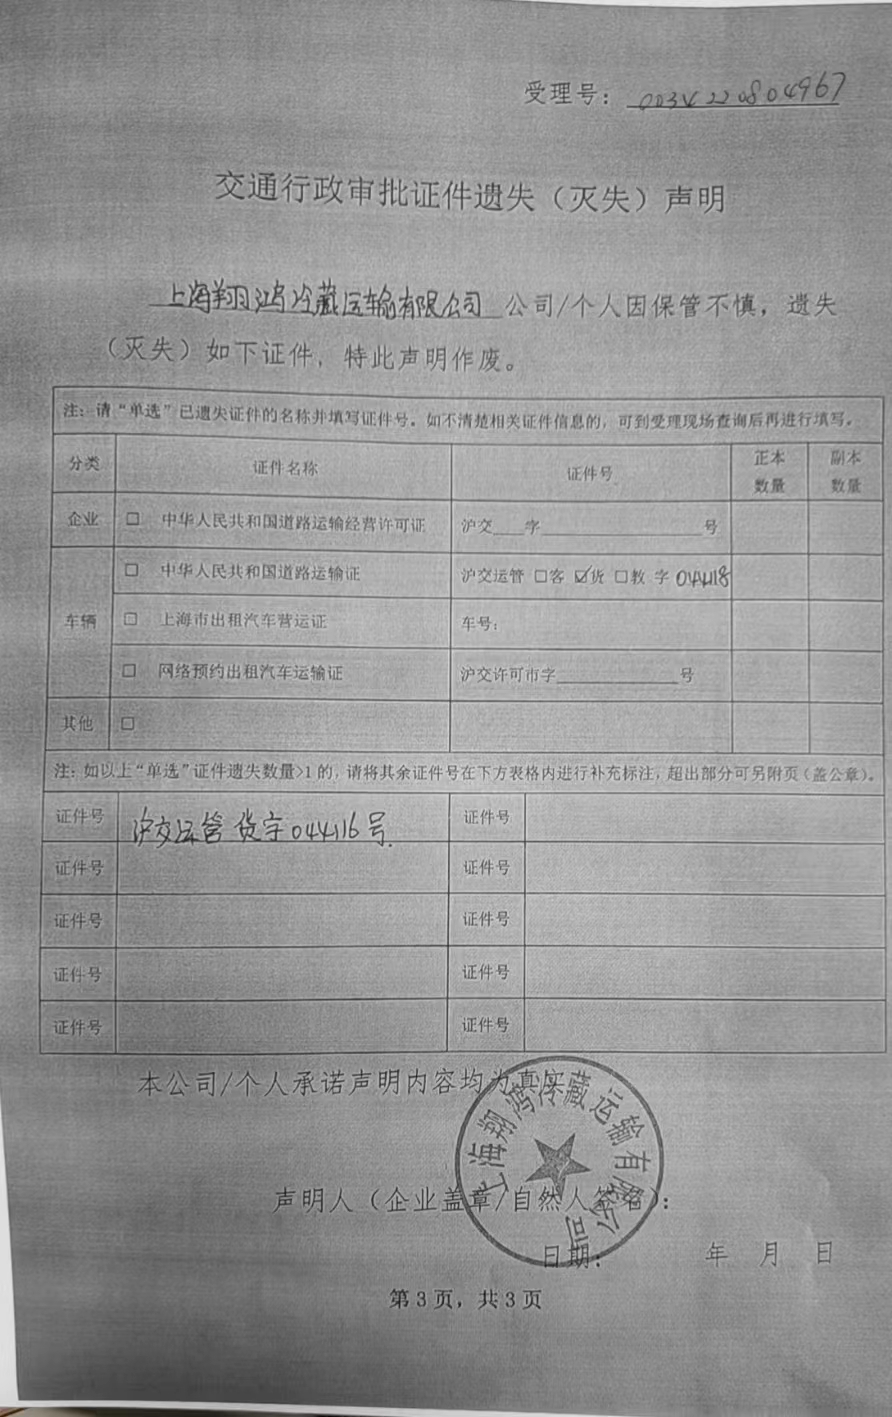 受理号：0034220804967
交通行政审批证件遗失（灭失）声明
上海翔鸿冷藏运输有限公司 公司/个人因保管不慎，遗失
（灭失）如下证件，特此声明作废。
注：请“单选”已遗失证件的名称并填写证件号。如不清楚相关证件信息的，可到受理现场查询后再进行填写。
分类 证件名称 证件号 正本数量 副本数量
企业 □ 中华人民共和国道路运输经营许可证 沪交___字______________号
车辆 □ 中华人民共和国道路运输证 沪交运管 □客 ☑货 □教 字 044118
□ 上海市出租汽车营运证 车号：
□ 网络预约出租汽车运输证 沪交许可市字____________号
其他 □
注：如以上“单选”证件遗失数量>1的，请将其余证件号在下方表格内进行补充标注，超出部分可另附页（盖公章）。
证件号 沪交运管 货字044116号. 证件号
证件号 证件号
证件号 证件号
证件号 证件号
证件号 证件号
本公司/个人承诺声明内容均为真实
上海翔鸿冷藏运输有限公司
声明人（企业盖章/自然人签名）：
日期： 年 月 日
第3页，共3页